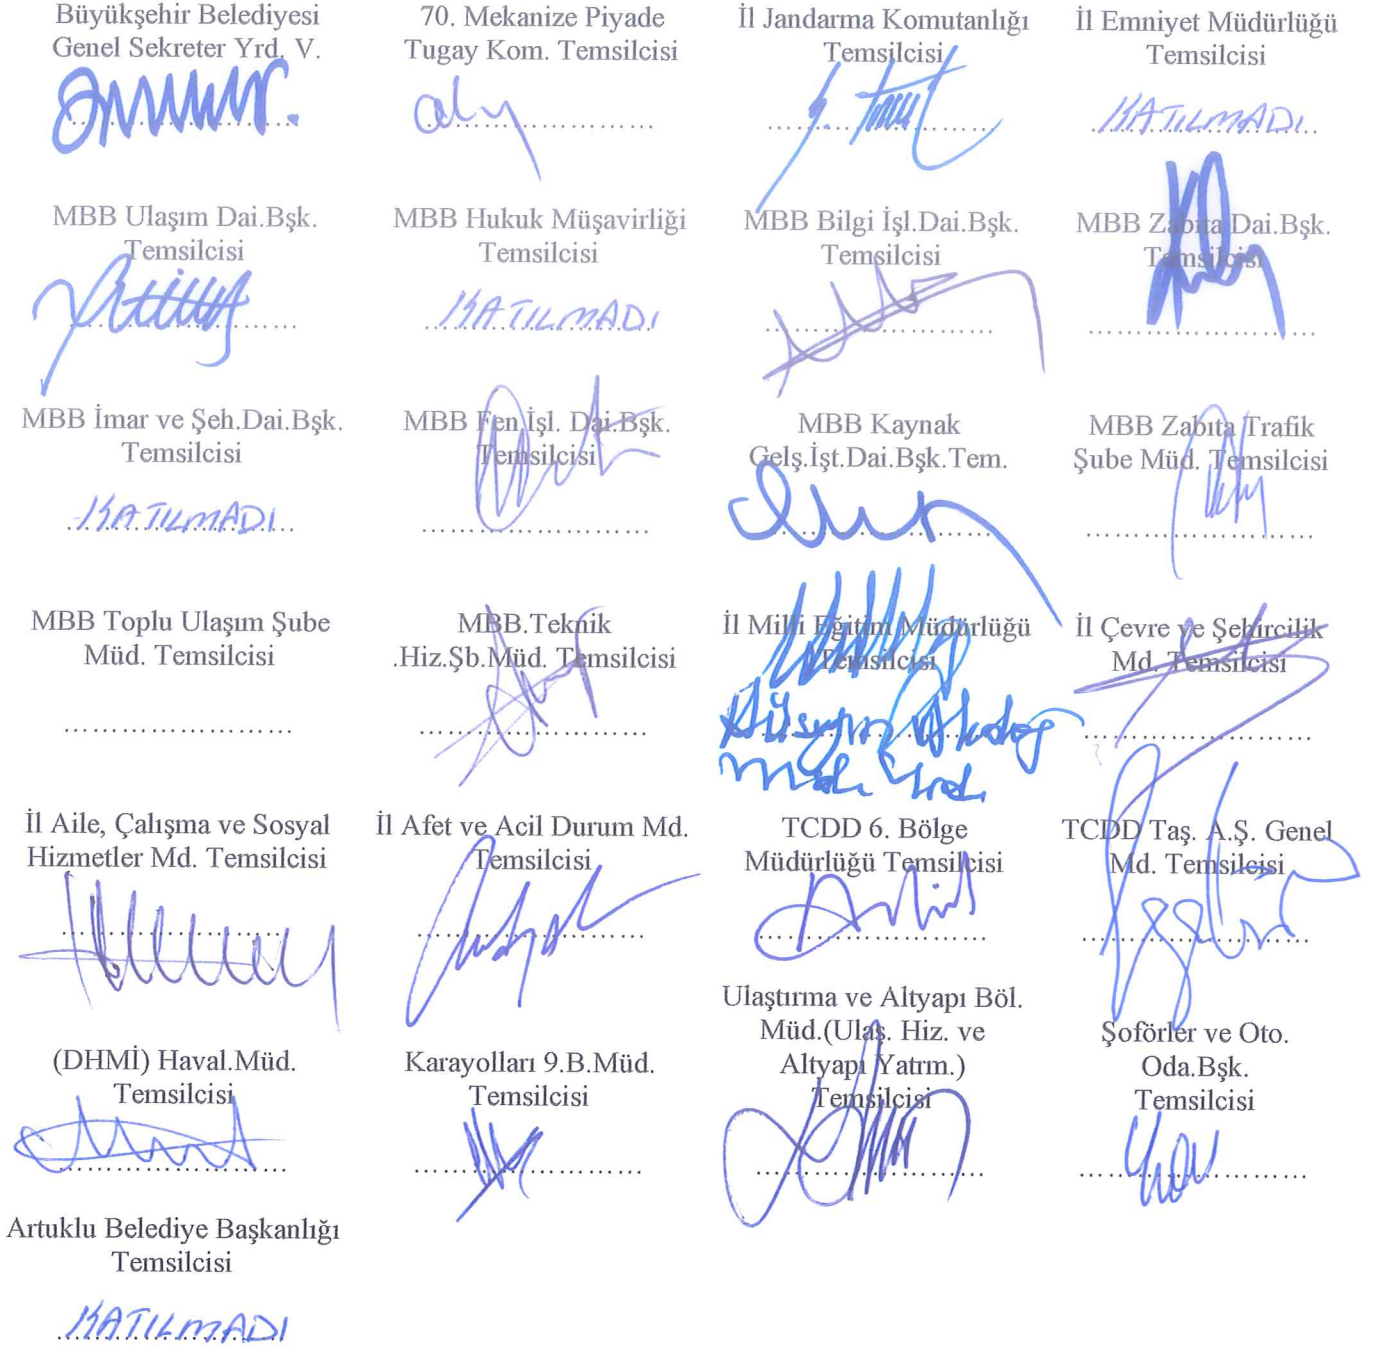 Büyükşehir Belediyesi
Genel Sekreter Yrd. V.
70. Mekanize Piyade
Tugay Kom. Temsilcisi
İl Jandarma Komutanlığı
Temsilcisi
İl Emniyet Müdürlüğü
Temsilcisi
KATILMADI
MBB Ulaşım Dai.Bşk.
Temsilcisi
MBB Hukuk Müşavirliği
Temsilcisi
KATILMADI
MBB Bilgi İşl.Dai.Bşk.
Temsilcisi
MBB Zabıta Dai.Bşk.
Temsilcisi
MBB İmar ve Şeh.Dai.Bşk.
Temsilcisi
KATILMADI
MBB Fen İşl. Dai.Bşk.
Temsilcisi
MBB Kaynak
Gelş.İşt.Dai.Bşk.Tem.
MBB Zabıta Trafik
Şube Müd. Temsilcisi
MBB Toplu Ulaşım Şube
Müd. Temsilcisi
MBB.Teknik
.Hiz.Şb.Müd. Temsilcisi
İl Milli Eğitim Müdürlüğü
Temsilcisi
Hüseyin
İl Çevre ve Şehircilik
Md. Temsilcisi
İl Aile, Çalışma ve Sosyal
Hizmetler Md. Temsilcisi
İl Afet ve Acil Durum Md.
Temsilcisi
TCDD 6. Bölge
Müdürlüğü Temsilcisi
TCDD Taş. A.Ş. Genel
Md. Temsilcisi
(DHMİ) Haval.Müd.
Temsilcisi
Karayolları 9.B.Müd.
Temsilcisi
Ulaştırma ve Altyapı Böl.
Müd.(Ulaş. Hiz. ve
Altyapı Yatrm.)
Temsilcisi
Şoförler ve Oto.
Oda.Bşk.
Temsilcisi
Artuklu Belediye Başkanlığı
Temsilcisi
KATILMADI